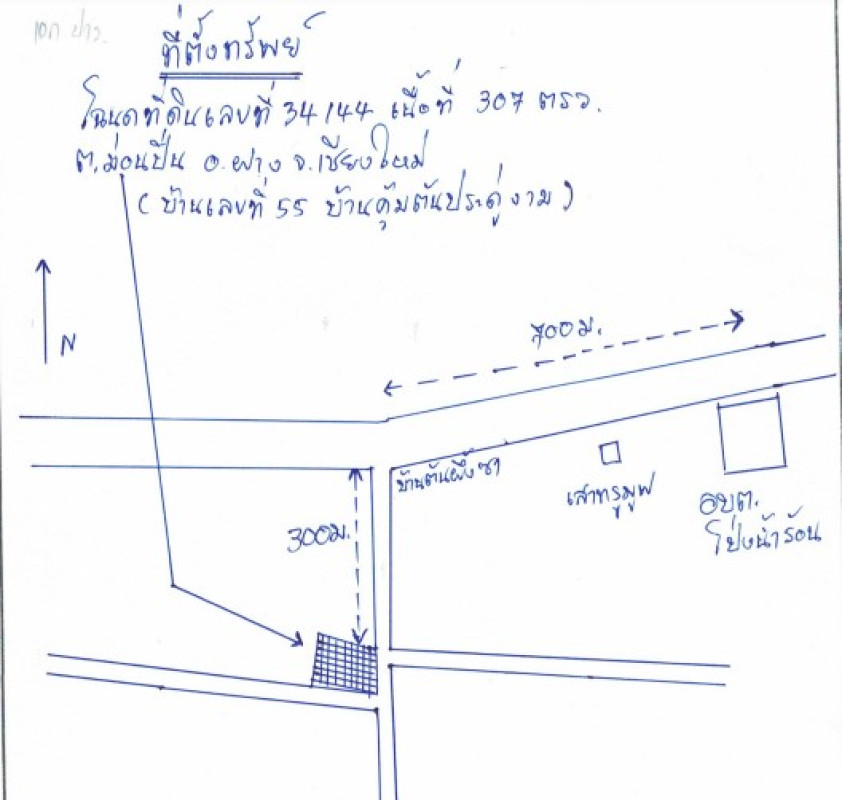 ที่ตั้งทรัพย์
โฉนดที่ดินเลขที่ 34144 เนื้อที่ 307 ตรว.
ต.ม่อนปิ่น อ.ฝาง จ.เชียงใหม่
(บ้านเลขที่ 55 บ้านคุ้มต้นประดู่งาม)
N
700ม.
บ้านต้นผึ้ง
เสาทรูมูฟ
อบต.
โป่งน้ำร้อน
300ม.